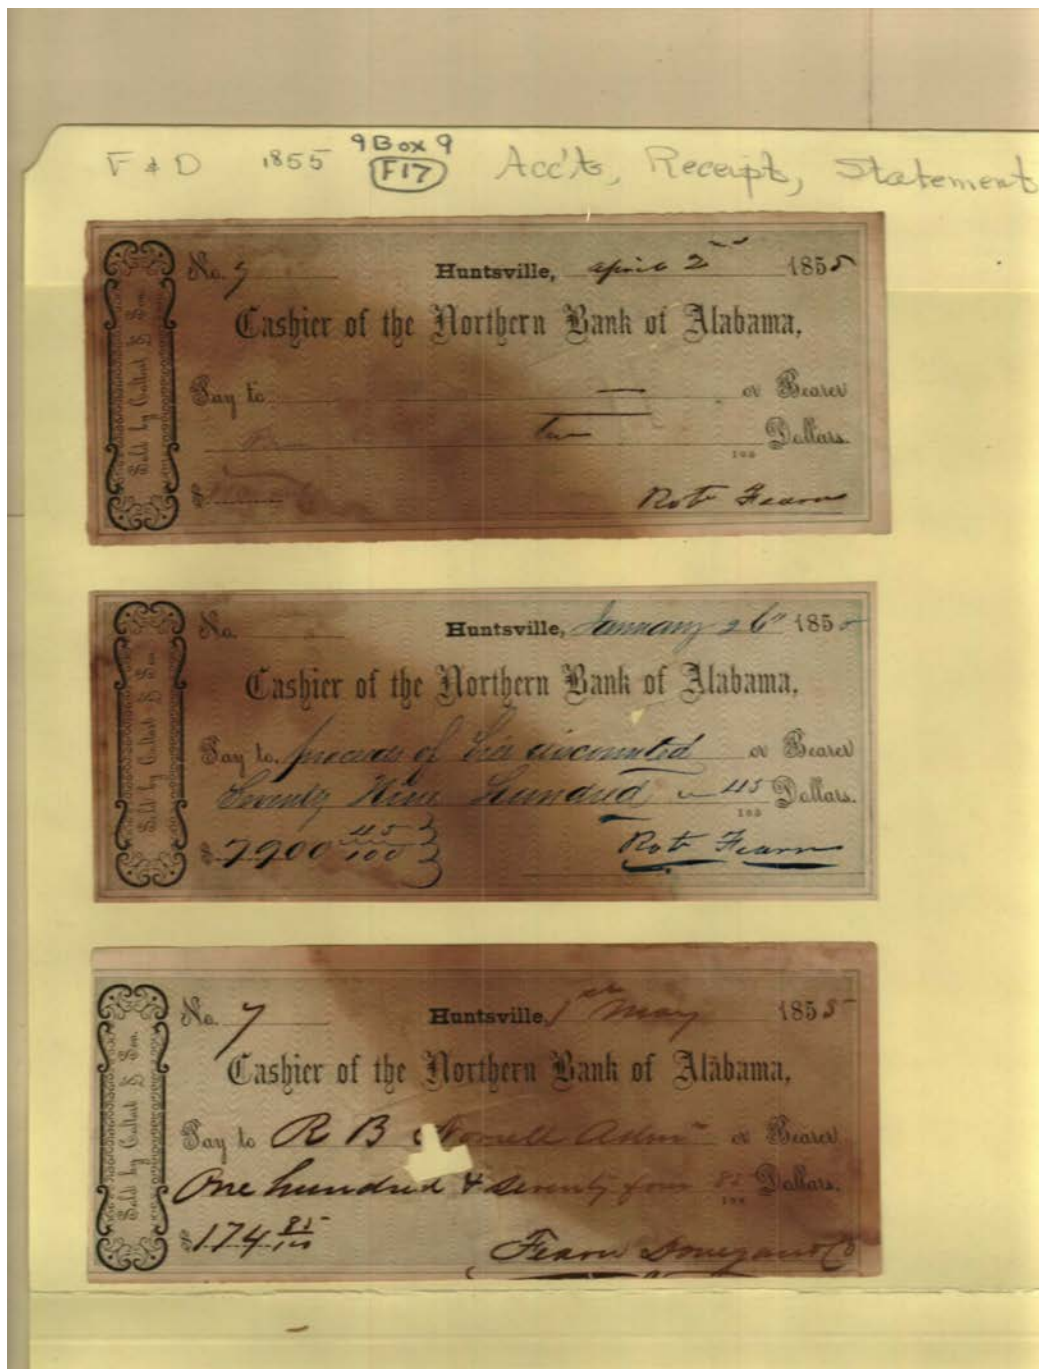 F & D 1855 9 Box 9 Acc'ts, Receipts, Statement
F17
No. 7 Huntsville, April 2 1855
Cashier of the Northern Bank of Alabama,
Pay to or Bearer
Dollars.
100
$ Robt Fearn
Sold by Coltart & Son.
No. Huntsville, January 26th 1855
Cashier of the Northern Bank of Alabama,
Pay to proceeds of discounted or Bearer
Seventy Nine Hundred 45 Dollars.
100
$7900 45/100 Robt Fearn
Sold by Coltart & Son.
No. 7 Huntsville, 1st May 1855
Cashier of the Northern Bank of Alabama,
Pay to R B Admr or Bearer
One hundred & seventy four 85 Dollars.
100
$174 85/100 Fearn Donegan & Co
Sold by Coltart & Son.